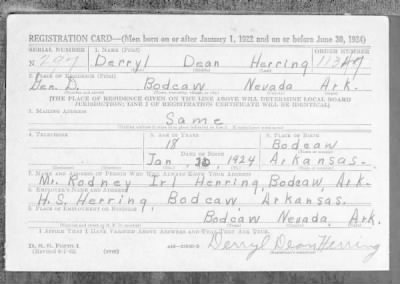 REGISTRATION CARD—(Men born on or after January 1, 1922 and on or before June 30, 1924)
SERIAL NUMBER 1. NAME (Print) ORDER NUMBER
N 297 Derryl Dean Herring
2. PLACE OF RESIDENCE (Print)
Gen. D. Bodcaw Nevada Ark.
[THE PLACE OF RESIDENCE GIVEN ON THE LINE ABOVE WILL DETERMINE LOCAL BOARD
JURISDICTION; LINE 2 OF REGISTRATION CERTIFICATE WILL BE IDENTICAL]
3. MAILING ADDRESS
Same
4. TELEPHONE 5. AGE IN YEARS 6. PLACE OF BIRTH
18 Bodcaw
DATE OF BIRTH
Jan 1924 Arkansas.
7. NAME AND ADDRESS OF PERSON WHO WILL ALWAYS KNOW YOUR ADDRESS
Mr. Rodney Irl Herring, Bodcaw, Ark.
8. EMPLOYER'S NAME AND ADDRESS
H.S. Herring, Bodcaw, Arkansas.
9. PLACE OF EMPLOYMENT OR BUSINESS
Bodcaw Nevada Ark.
I AFFIRM THAT I HAVE VERIFIED ABOVE ANSWERS AND THAT THEY ARE TRUE.
D. S. S. Form 1
Derryl Dean Herring